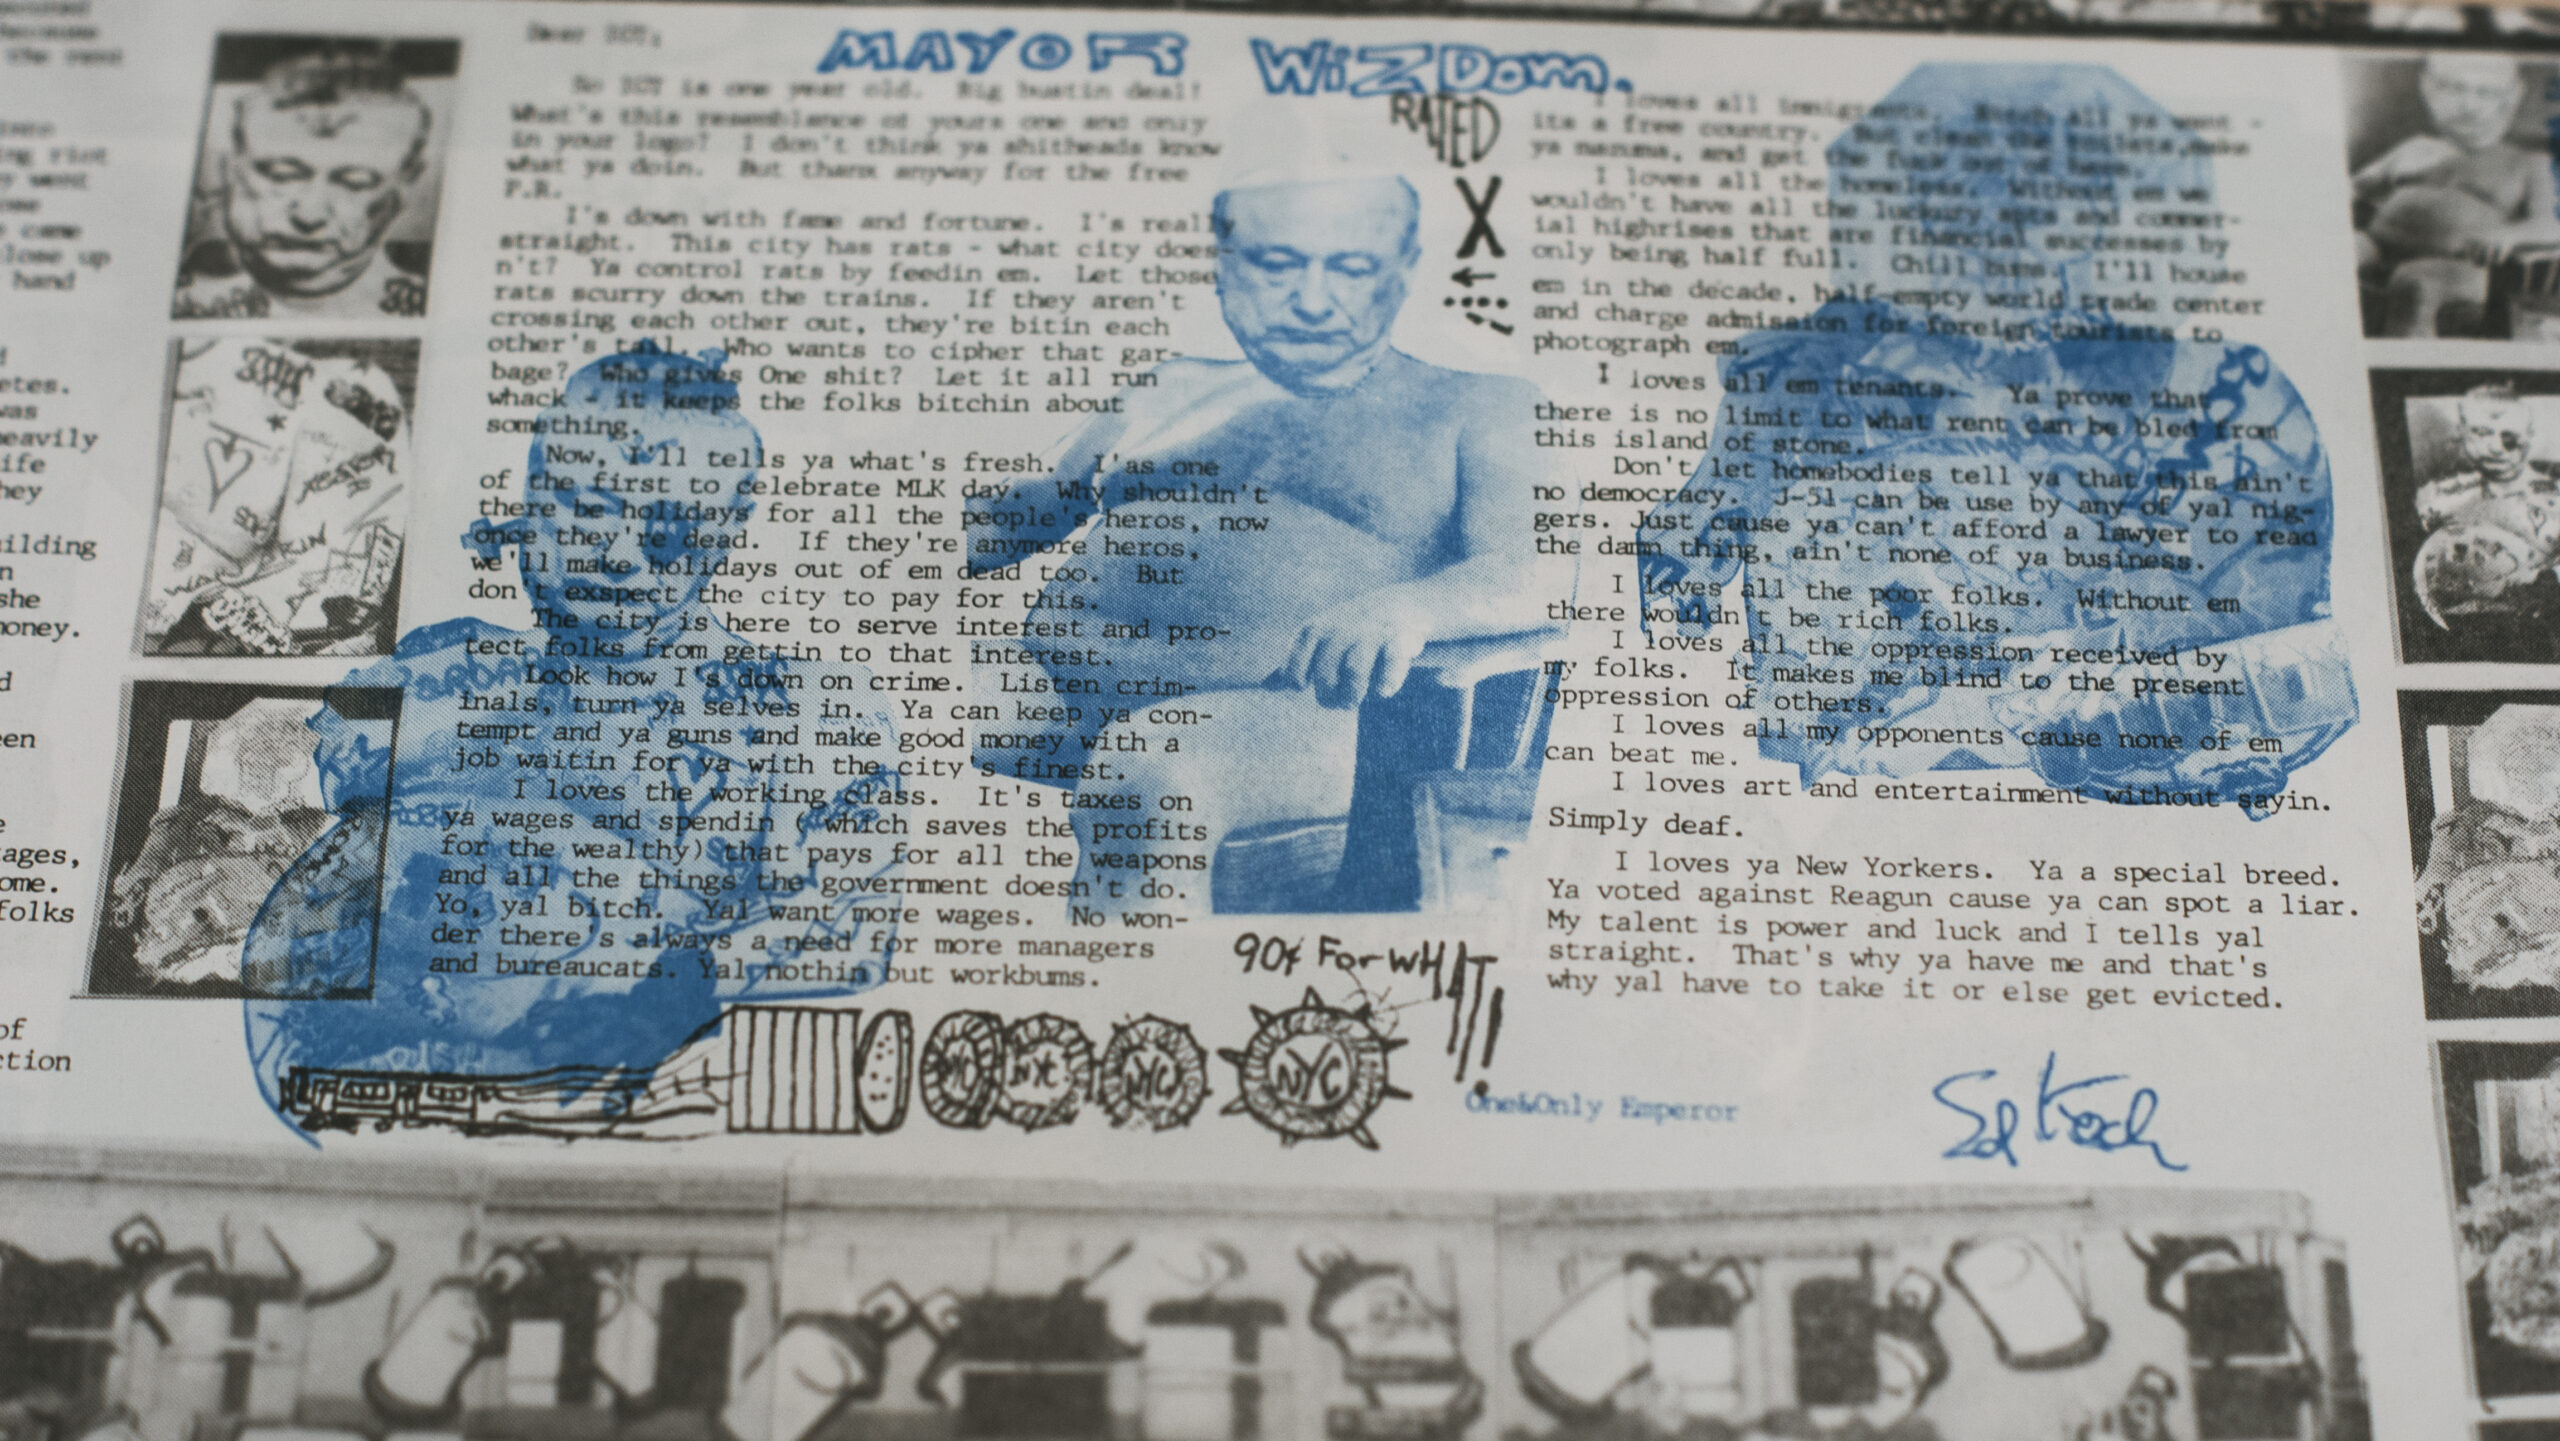 MAYOR WiZDom.
Dear IGT,
So IGT is one year old. Big bustin deal!
What's this resemblance of yours one and only
in your logo? I don't think ya shitheads know
what ya doin. But thanx anyway for the free
P.R.
I'm down with fame and fortune. I's really
straight. This city has rats - what city does-
n't? Ya control rats by feedin em. Let those
rats scurry down the trains. If they aren't
crossing each other out, they're bitin each
other's tail. Who wants to cipher that gar-
bage? Who gives One shit? Let it all run
whack - it keeps the folks bitchin about
something.
Now, I'll tells ya what's fresh. I'as one
of the first to celebrate MLK day. Why shouldn't
there be holidays for all the people's heros, now
once they're dead. If they're anymore heros,
we'll make holidays out of em dead too. But
don't exspect the city to pay for this.
The city is here to serve interest and pro-
tect folks from gettin to that interest.
Look how I's down on crime. Listen crim-
inals, turn ya selves in. Ya can keep ya con-
tempt and ya guns and make good money with a
job waitin for ya with the city's finest.
I loves the working class. It's taxes on
ya wages and spendin ( which saves the profits
for the wealthy) that pays for all the weapons
and all the things the government doesn't do.
Yo, yal bitch. Yal want more wages. No won-
der there's always a need for more managers
and bureaucats. Yal nothin but workbums.
RATED
X
I loves all immigrants. Bitch all ya want -
its a free country. But clean the toilets, make
ya mamma, and get the fuck out of here.
I loves all the homeless. Without em we
wouldn't have all the luckury apts and commer-
ial highrises that are financial successes by
only being half full. Chill bums. I'll house
em in the decade, half-empty world trade center
and charge admission for foreign tourists to
photograph em.
I loves all em tenants. Ya prove that
there is no limit to what rent can be bled from
this island of stone.
Don't let homebodies tell ya that this ain't
no democracy. J-51 can be use by any of yal nig-
gers. Just cause ya can't afford a lawyer to read
the damn thing, ain't none of ya business.
I loves all the poor folks. Without em
there wouldn t be rich folks.
I loves all the oppression received by
my folks. It makes me blind to the present
oppression of others.
I loves all my opponents cause none of em
can beat me.
I loves art and entertainment without sayin.
Simply deaf.
I loves ya New Yorkers. Ya a special breed.
Ya voted against Reagun cause ya can spot a liar.
My talent is power and luck and I tells yal
straight. That's why ya have me and that's
why yal have to take it or else get evicted.
90¢ FoR WHAT!
NYC NYC NYC NYC
One&Only Emperor
Ed Koch
close up
hand
etes.
was
heavily
ife
hey
uilding
n
she
money.
d
een
e
ages,
ome.
folks
of
ction